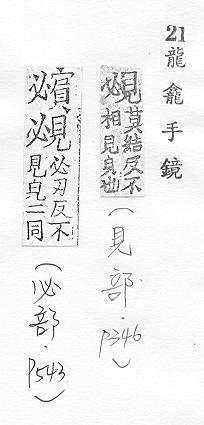 21龍龕手鏡
覕莫結反不
相見皃也
(見部·P346)
覕必刃反不
見皃二同
(必部·P543)